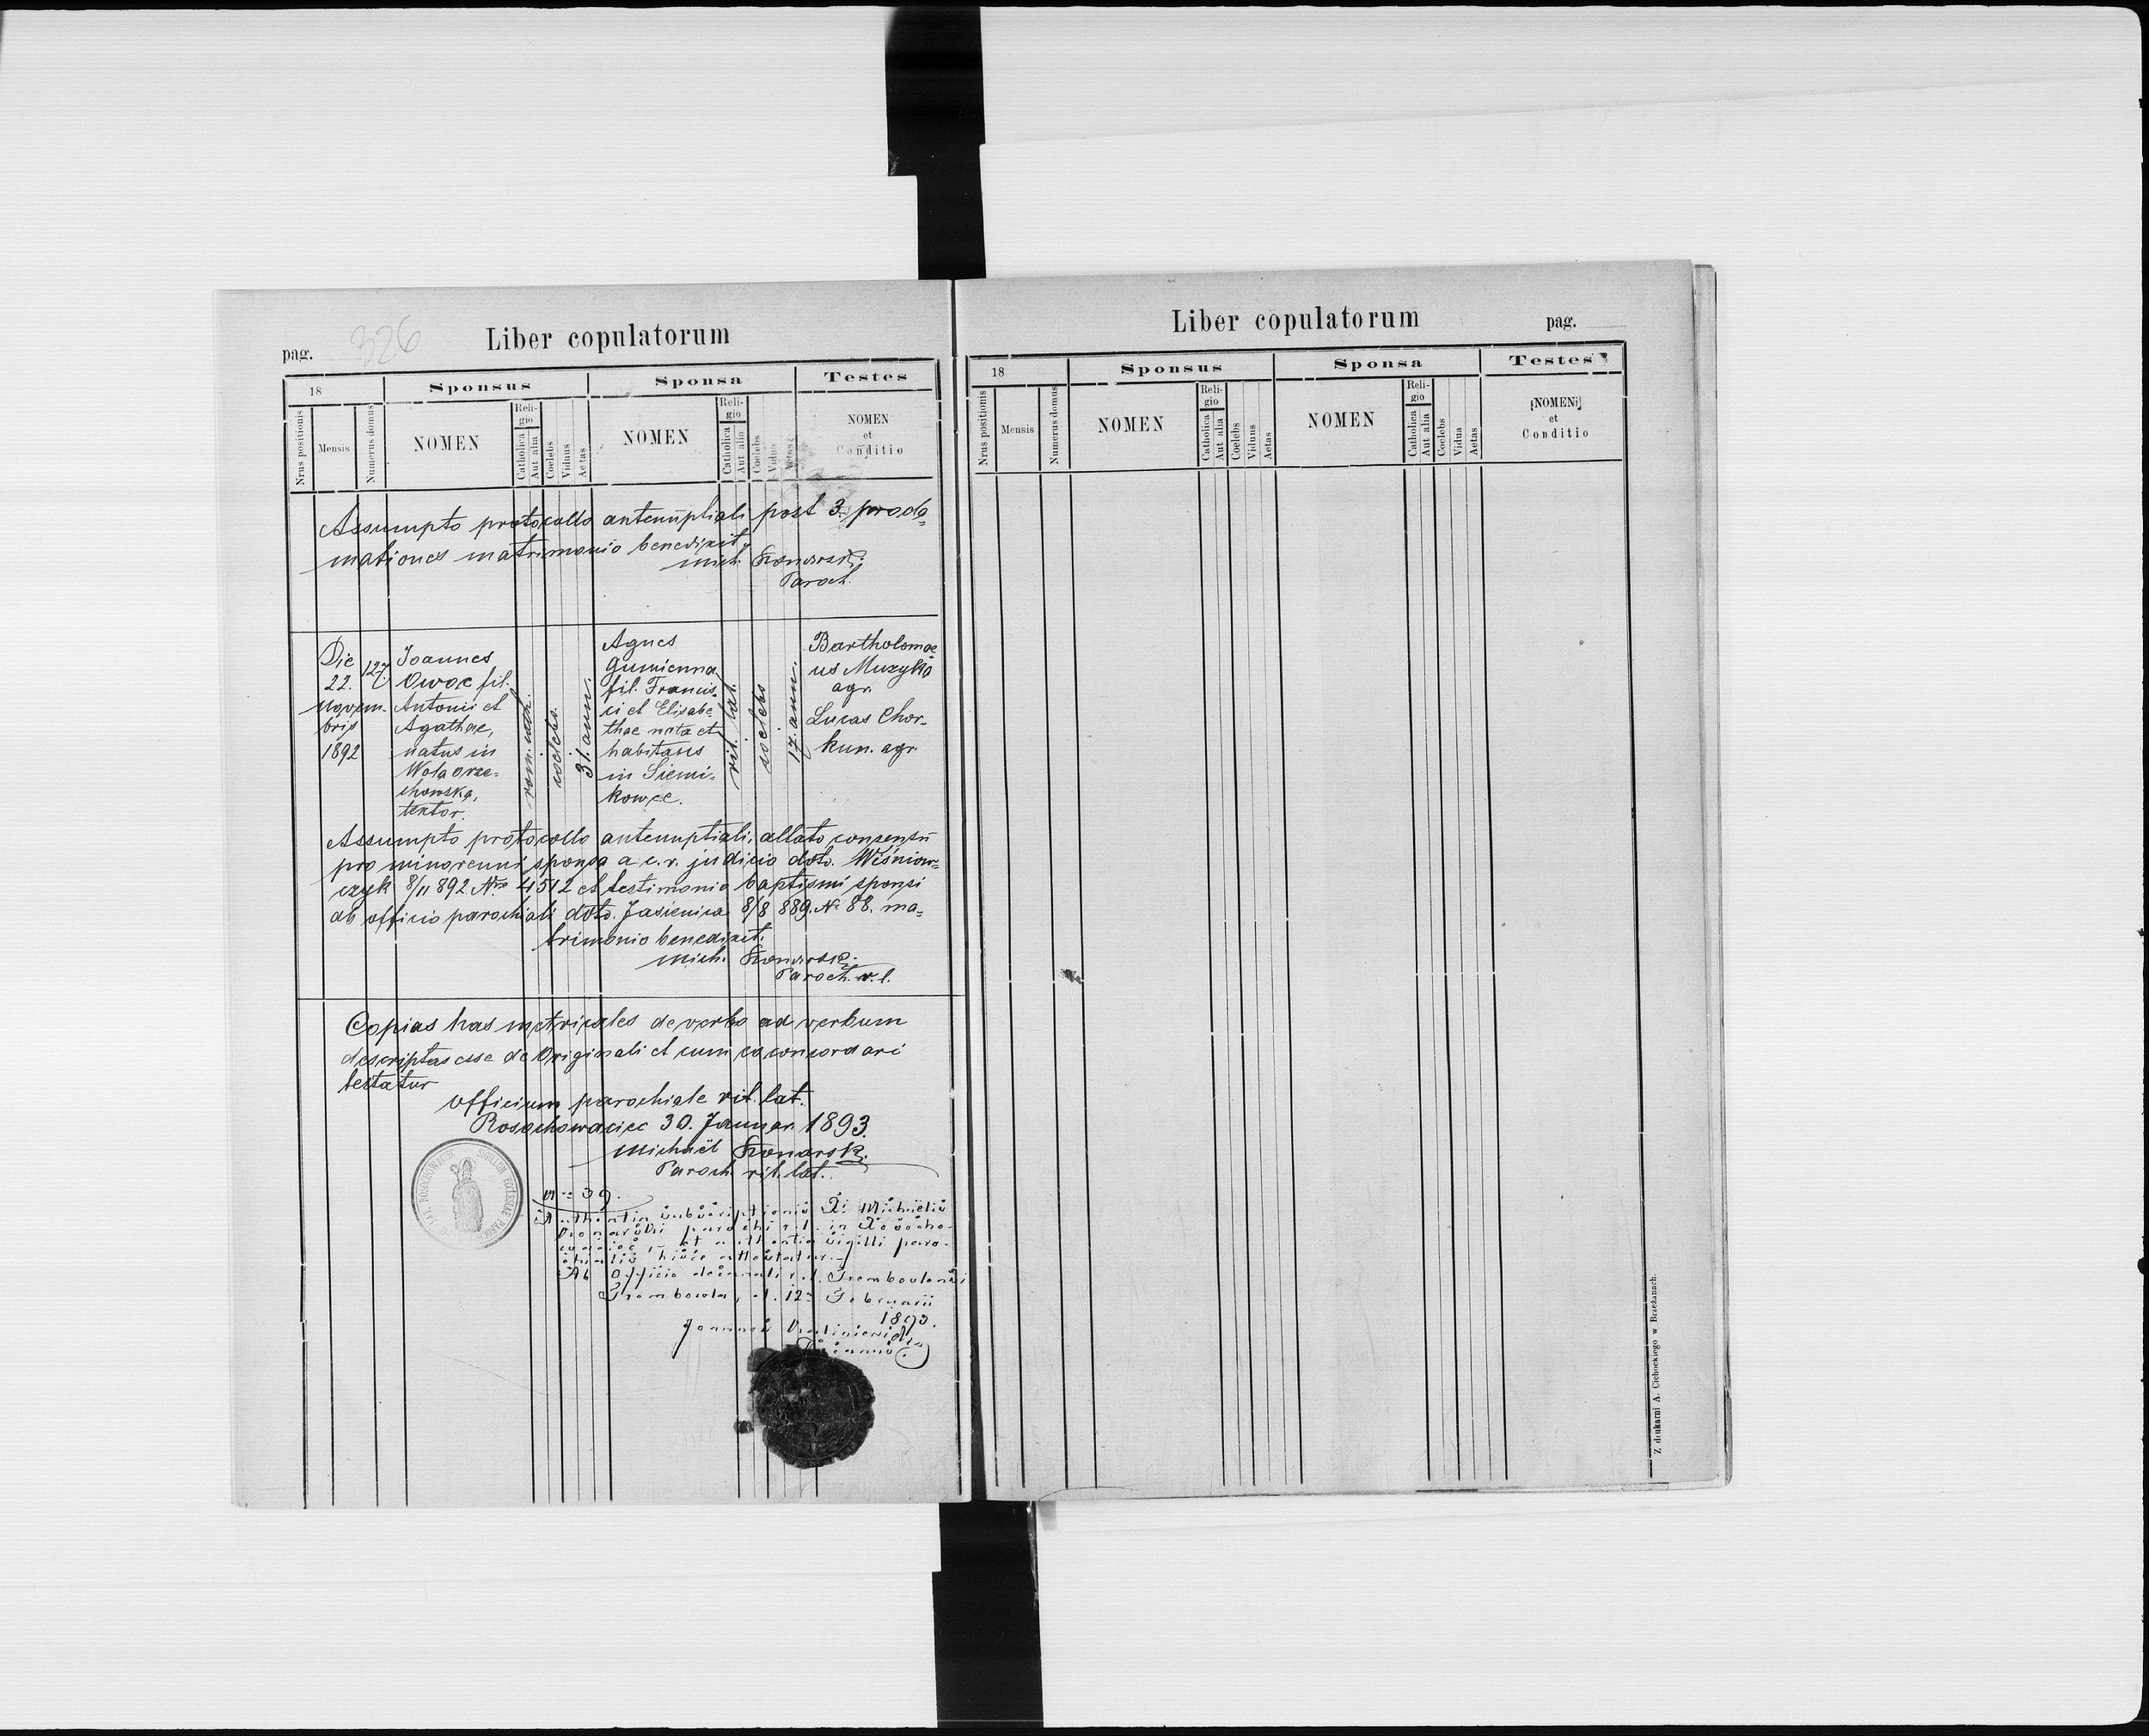 pag. 326
Liber copulatorum
18
Sponsus
Sponsa
Testes
Nrus positionis
Mensis
Numerus domus
NOMEN
Reli-
gio
Catholica
Aut alia
Coelebs
Viduus
Aetas
NOMEN
Reli-
gio
Catholica
Aut alia
Coelebs
Vidua
Aetas
NOMEN
et
Conditio
Assumpto protocollo antenuptiali post 3. procla=
mationes matrimonio benedixit,
Mich. Konarski
Paroch.
Die
22.
Novem-
bris
1892
127
Joannes
Owoc fil.
Antonii et
Agathae,
natus in
Wola orze-
chowska,
textor.
rom. cath.
coelebs.
31. ann.
Agnes
Gumienna
fil. Francis-
ci et Elisabe-
thae nata et
habitans
in Siemi-
kowce.
rit. lat.
coelebs
17. ann.
Bartholomae
us Muzyka
agr.
Lucas Chor-
kun. agr.
Assumpto protocollo antenuptiali; allato consensu
pro minorenni sponsa a c. r. judicio ddto. Wiśniow=
czyk 8/11 892 Nro 4512 et testimonio baptismi sponsi
ab officio parochiali ddto. Jasienica 8/8 889. No 88. ma=
trimonio benedixit.
Mich. Konarski
Paroch. r. l.
Copias has metricales de verbo ad verbum
descriptas esse de Originali et cum eo concordari
testatur
Officium parochiale rit. lat.
Rosochowaciec 30. Januar. 1893.
Michael Konarski
Paroch. rit. lat.
SIGILLUM ECCLESIAE PAROCH
Nro 39.
Authentia subscriptionis Michaëlis
Konarski parochi r. l. in Rosocho-
waciec, et authentia sigilli paro-
chialis hisce attestatur.
Ab Officio decanali r. l. Trembovlensi
Trembowla, d. 12 Februarii
1893.
Joannes
Decanus
Liber copulatorum
pag.
18
Sponsus
Sponsa
Testes
Nrus positionis
Mensis
Numerus domus
NOMEN
Reli-
gio
Catholica
Aut alia
Coelebs
Viduus
Aetas
NOMEN
Reli-
gio
Catholica
Aut alia
Coelebs
Vidua
Aetas
NOMEN
et
Conditio
Z drukarni A. Cichockiego w Brzeżanach.